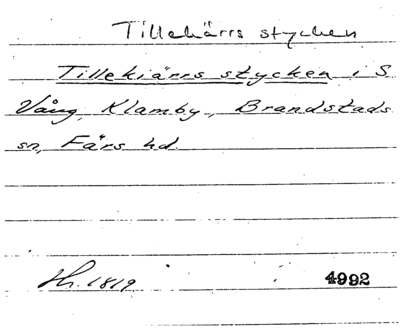 Tillekärrs stycken
Tillekiärrs stycken i S
Vång, Klamby, Brandstads
sn, Färs hd
Hr. 1819. 4992